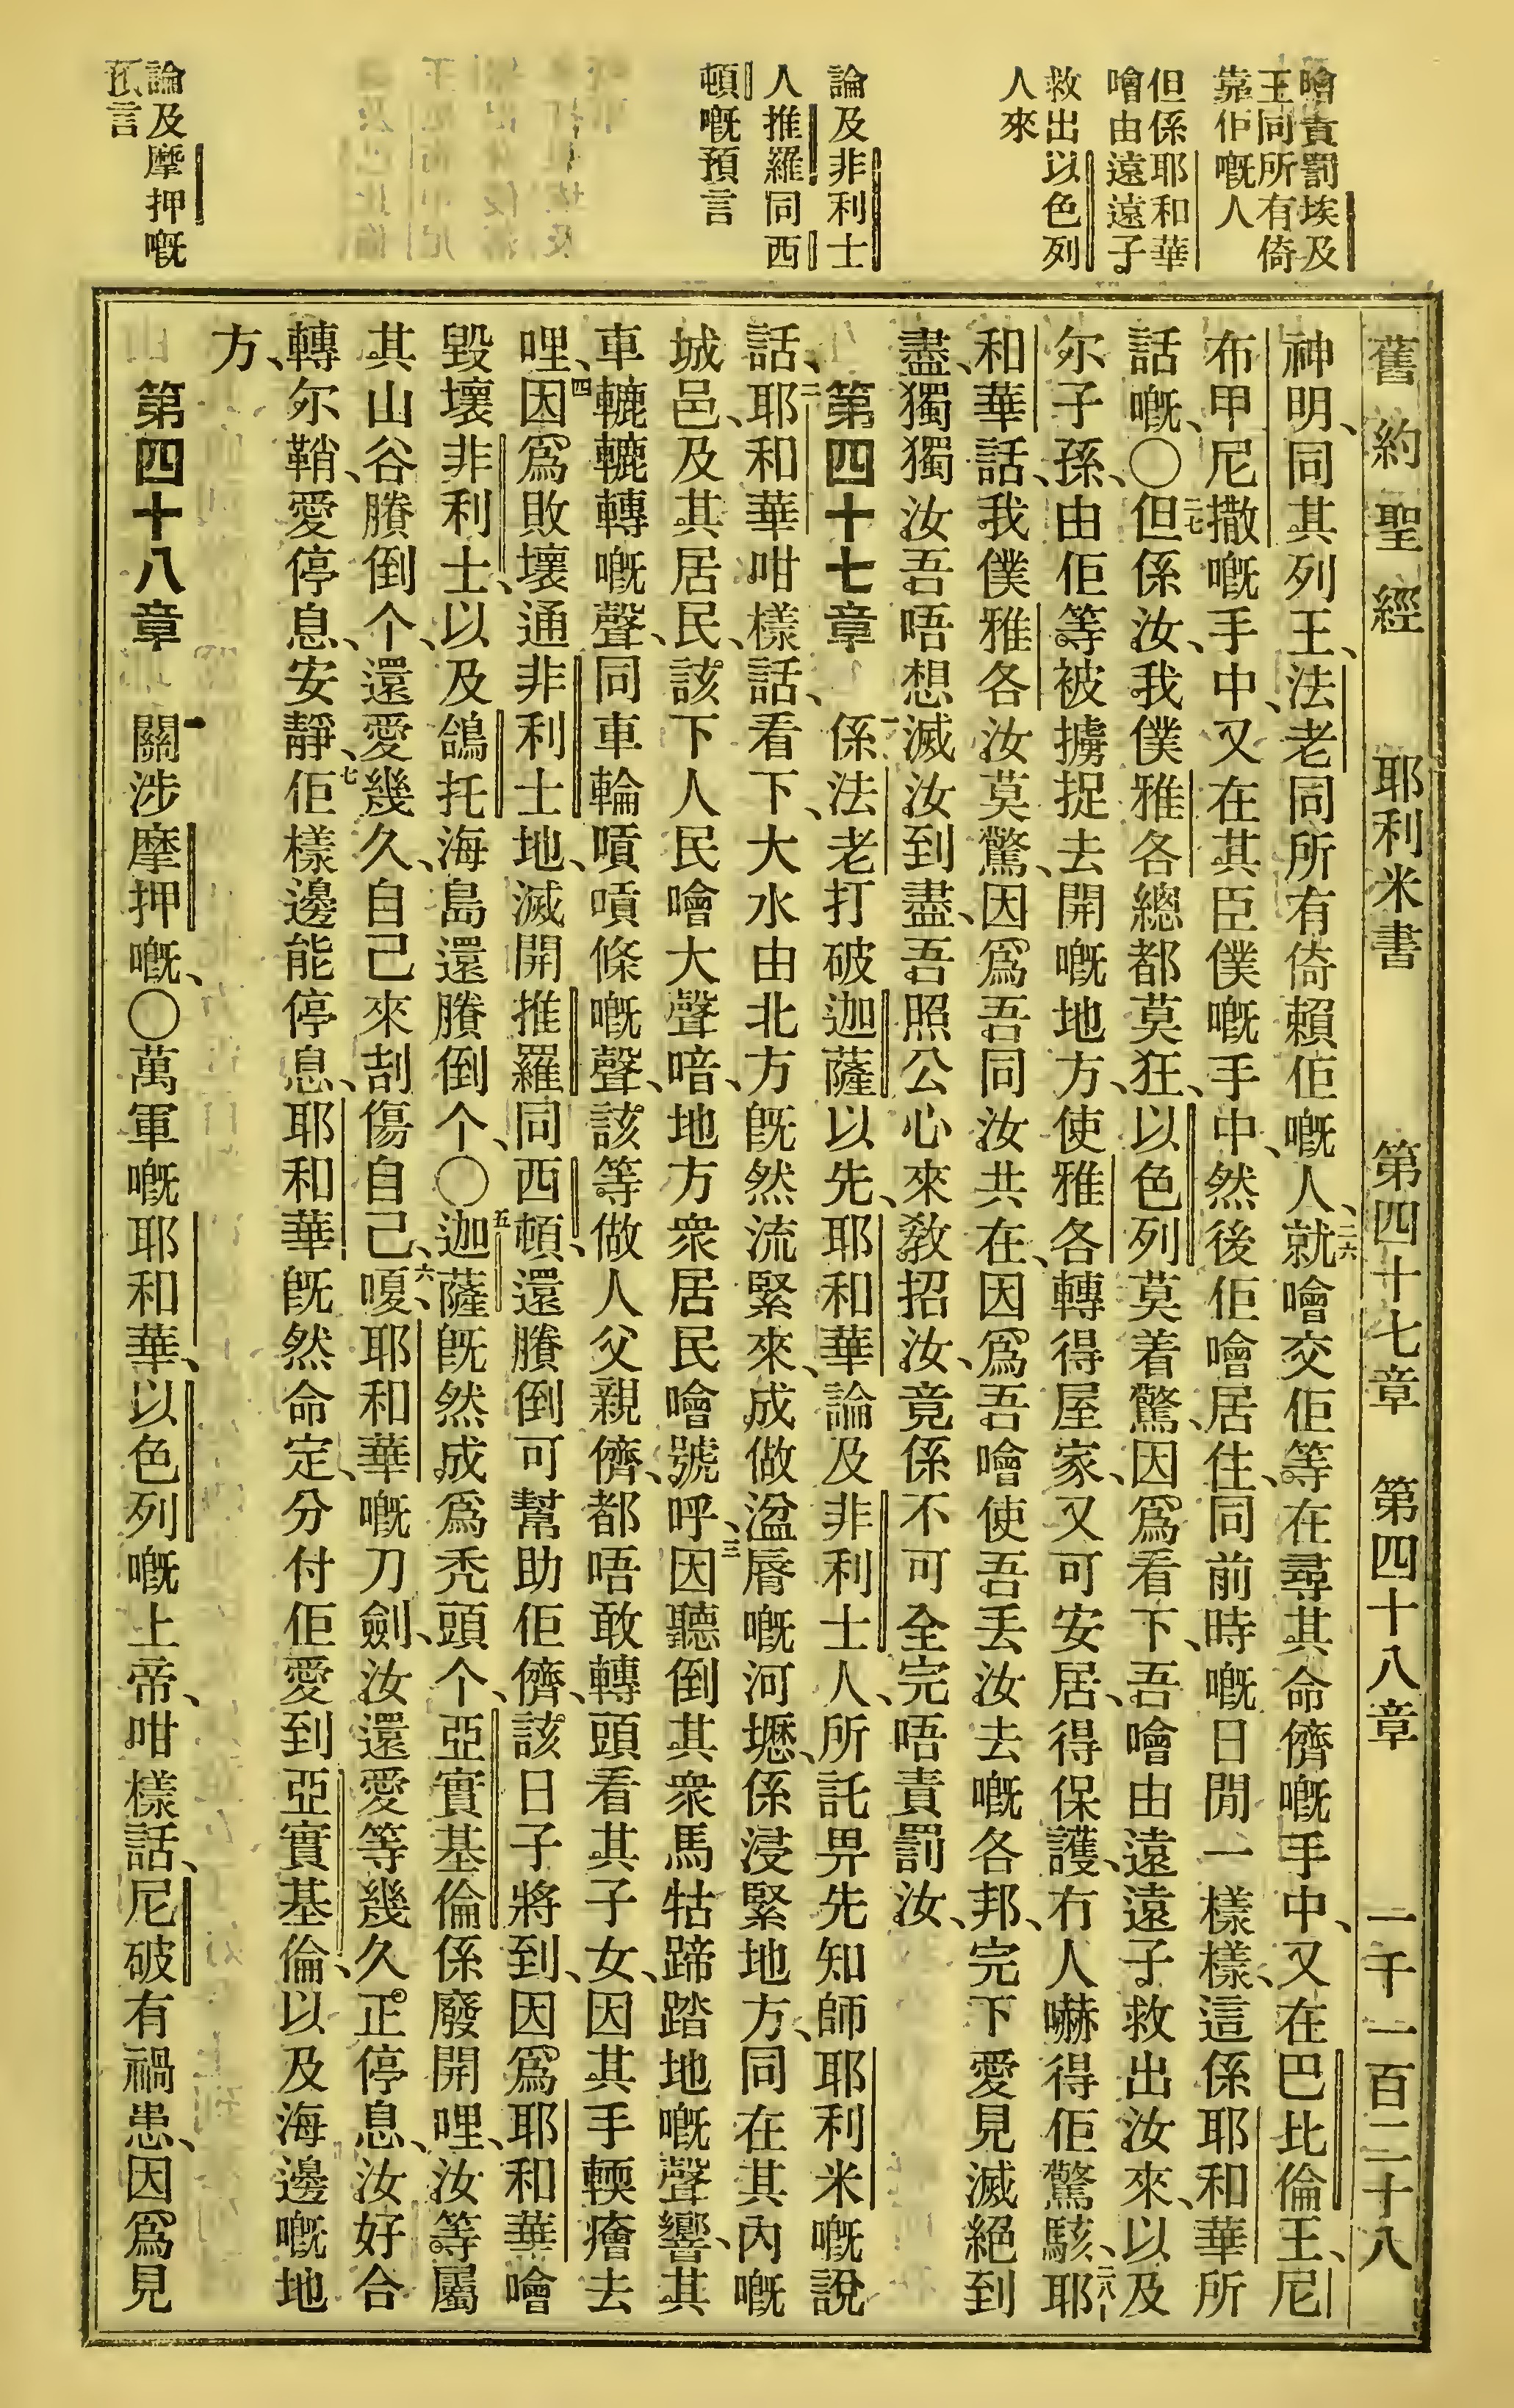 舊約聖經 耶利米書 第四十七章 第四十八章 一千一百二十八
噲責罰埃及
王同所有倚
靠佢嘅人
但係耶和華
噲由遠遠孑
救出以色列
人來
論及非利士
人推羅同西
頓嘅預言
論及摩押嘅
預言
神明、同其列王、法老同所有倚賴佢嘅人、二六就噲交佢等在尋其命儕嘅手中、又在巴比倫王、尼
布甲尼撒嘅手中、又在其臣僕嘅手中、然後佢噲居住、同前時嘅日閒一樣樣、這係耶和華所
話嘅、〇二七但係汝、我僕雅各總都莫狂、以色列莫着驚、因爲看下、吾噲由遠遠孑救出汝來、以及
尔子孫、由佢等被擄捉去開嘅地方、使雅各轉得屋家、又可安居、得保護、冇人嚇得佢驚駭、二八耶
和華話、我僕雅各汝莫驚、因爲吾同汝共在、因爲吾噲使吾丢汝去嘅各邦、完下愛見滅絕到
盡、獨獨汝吾唔想滅汝到盡、吾照公心來敎招汝、竟係不可全完唔責罰汝、
第四十七章 一係法老打破迦薩以先、耶和華論及非利士人、所託畀先知師耶利米嘅說
話、二耶和華咁樣話、看下、大水由北方旣然流緊來、成做湓脣嘅河壢、係浸緊地方、同在其內嘅
城邑、及其居民、該下人民噲大聲喑、地方衆居民噲號呼、三因聽倒其衆馬牯蹄踏地嘅聲響、其
車轆轆轉嘅聲、同車輪嗊嗊條嘅聲、該等做人父親儕、都唔敢轉頭看其子女、因其手輭癐去
哩、四因爲敗壞通非利士地、滅開推羅同西頓、還賸倒可幫助佢儕、該日子將到、因爲耶和華噲
毀壞非利士、以及鴿托海島還賸倒个、〇五迦薩旣然成爲禿頭个、亞實基倫係廢開哩、汝等屬
其山谷賸倒个、還愛幾久、自己來刮傷自己、六嗄、耶和華嘅刀劍、汝還愛等幾久正停息、汝好合
轉尔鞘、愛停息、安靜、七佢樣邊能停息、耶和華旣然命定、分付佢愛到亞實基倫、以及海邊嘅地
方、
第四十八章 一關涉摩押嘅、〇萬軍嘅耶和華、以色列嘅上帝、咁樣話、尼破有禍患、因爲見